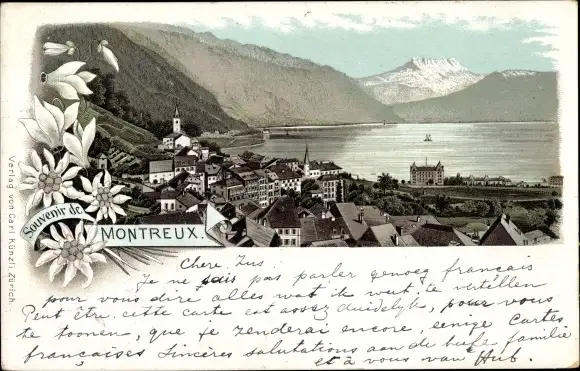 Souvenir de
MONTREUX.
Verlag von Carl Künzli, Zürich.
Chere Zus
Je ne sais pas parler genoeg français
pour vous dire alles wat ik te vertellen
Peut être cette carte est assez duidelyk, pour vous
te toonen, que je zenderai encore, eenige Cartes
françaises Sincères salutations aan de heele familie
et à vous van Hub.